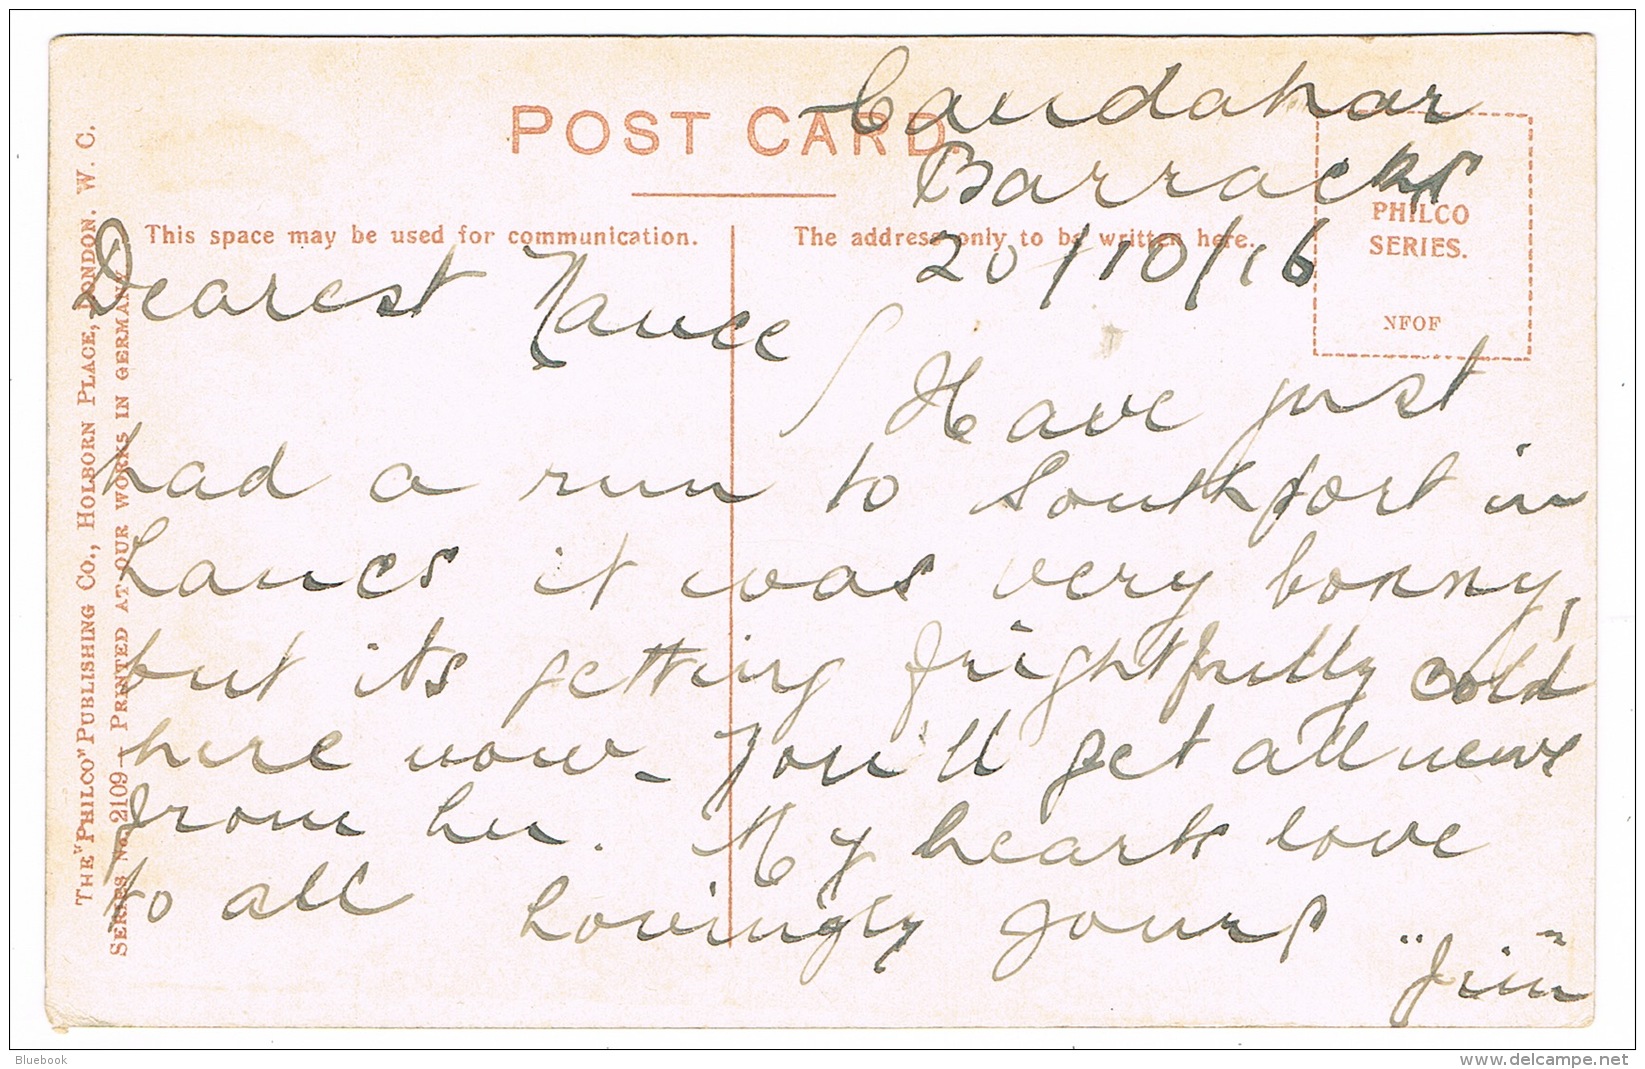 Candahar
POST CARD.
Barracks
This space may be used for communication.
The address only to be written here.
20/10/16
PHILCO
SERIES.
NFOF
Dearest Nance
Have just
had a run to Southport in
Lancs it was very bonny,
but its getting frightfully cold
here now - You'll get all news
from her. My hearts love
to all Lovingly yours
"Jim"
THE "PHILCO" PUBLISHING CO., HOLBORN PLACE, LONDON. W. C.
SERIES No. 2109 - PRINTED AT OUR WORKS IN GERMANY
Bluebook
delcampe.net